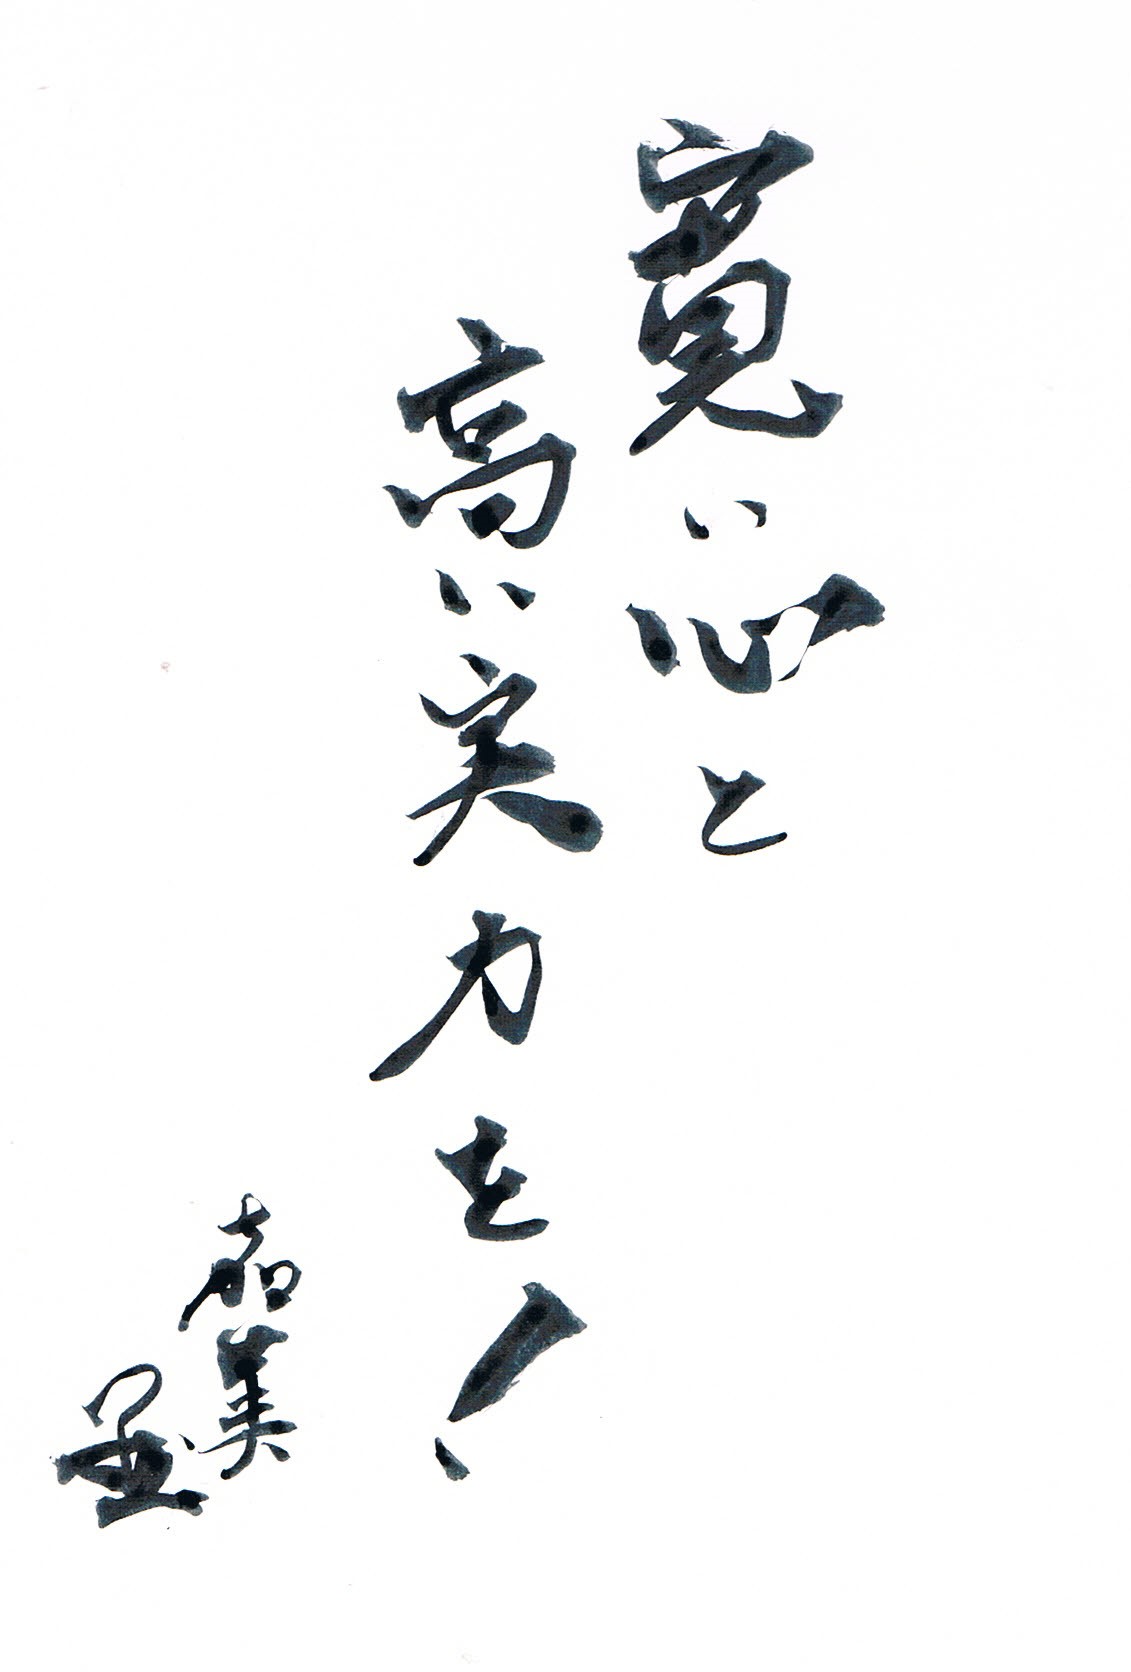 寛い心と
高い実力を!